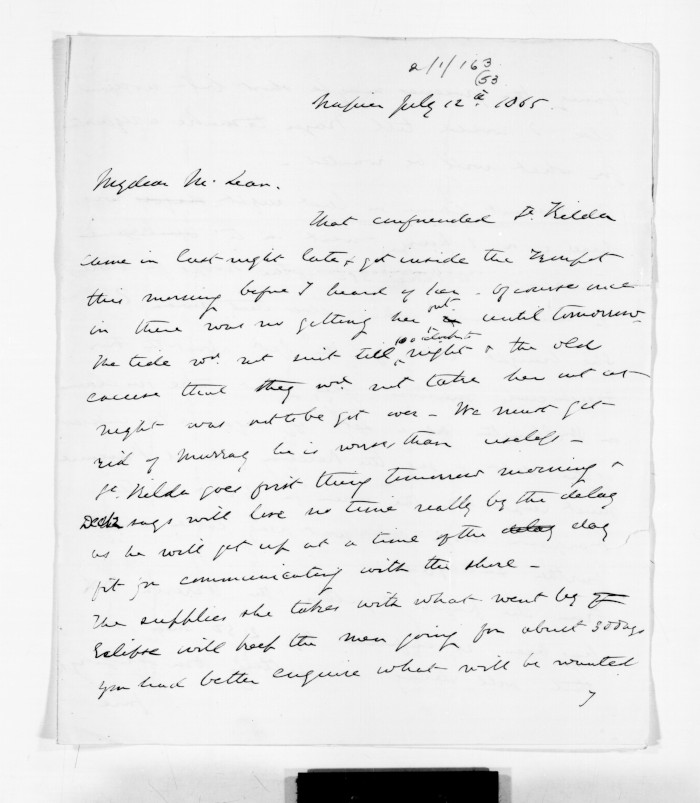 2/1/163
(53
Napier July 12th 1865.
My dear Mc Lean.
That confounded St. Kilda
came in last night late & got inside the
this morning before I heard of her - Of course once
in there was no getting her out until tomorrow
The tide wd. not suit till 10 o'clock night & the old
excuse that they wd. not take her out at
night was not to be got over - We must get
rid of Murray he is worse than useless -
St. Kilda goes first thing tomorrow morning &
says will lose no time really by the delay
as he will get up at a time of the delay day
fit for communicating with the shore -
The supplies she takes with what went by
Eclipse will keep the men going for about 30 days
you had better enquire what will be wanted